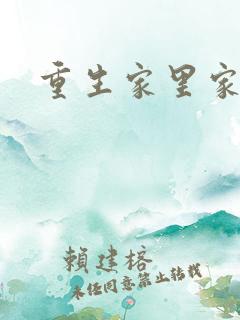 重生家里家
賴建榕
未经同意禁止转载